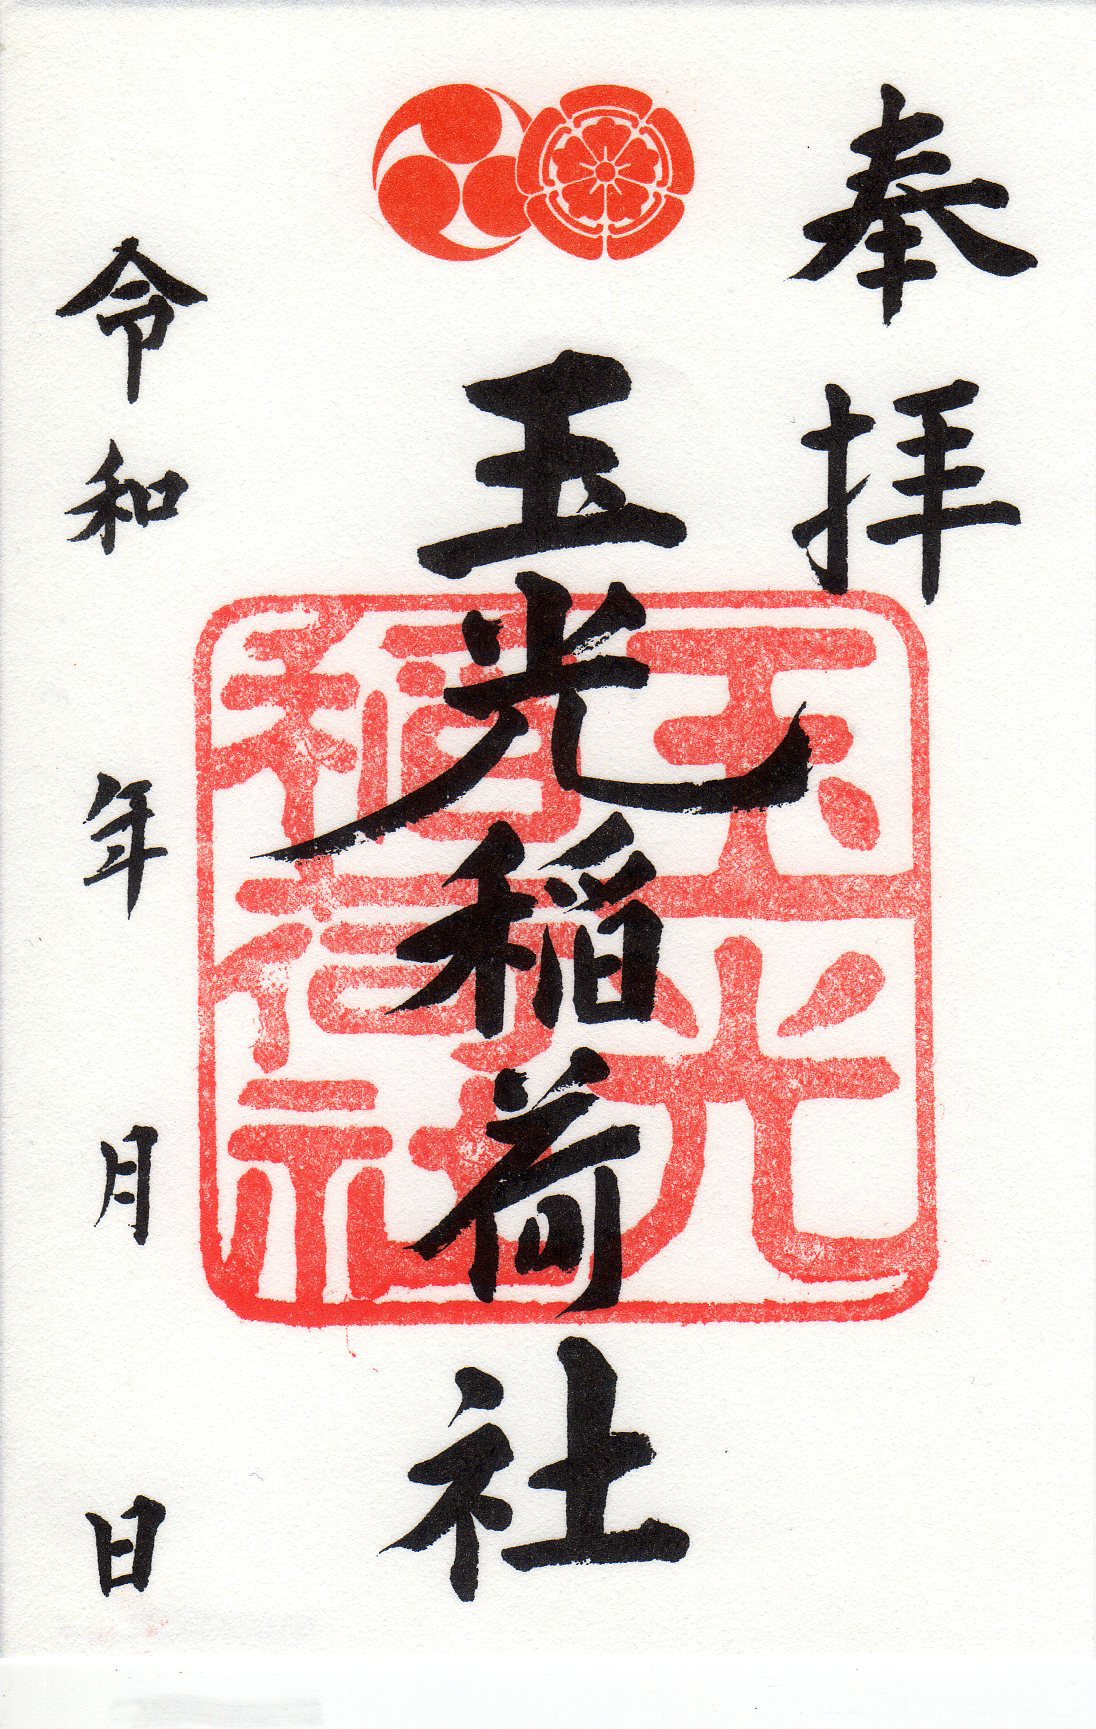 奉拝
玉光稲荷社
玉光
稲荷社
令和 年 月 日